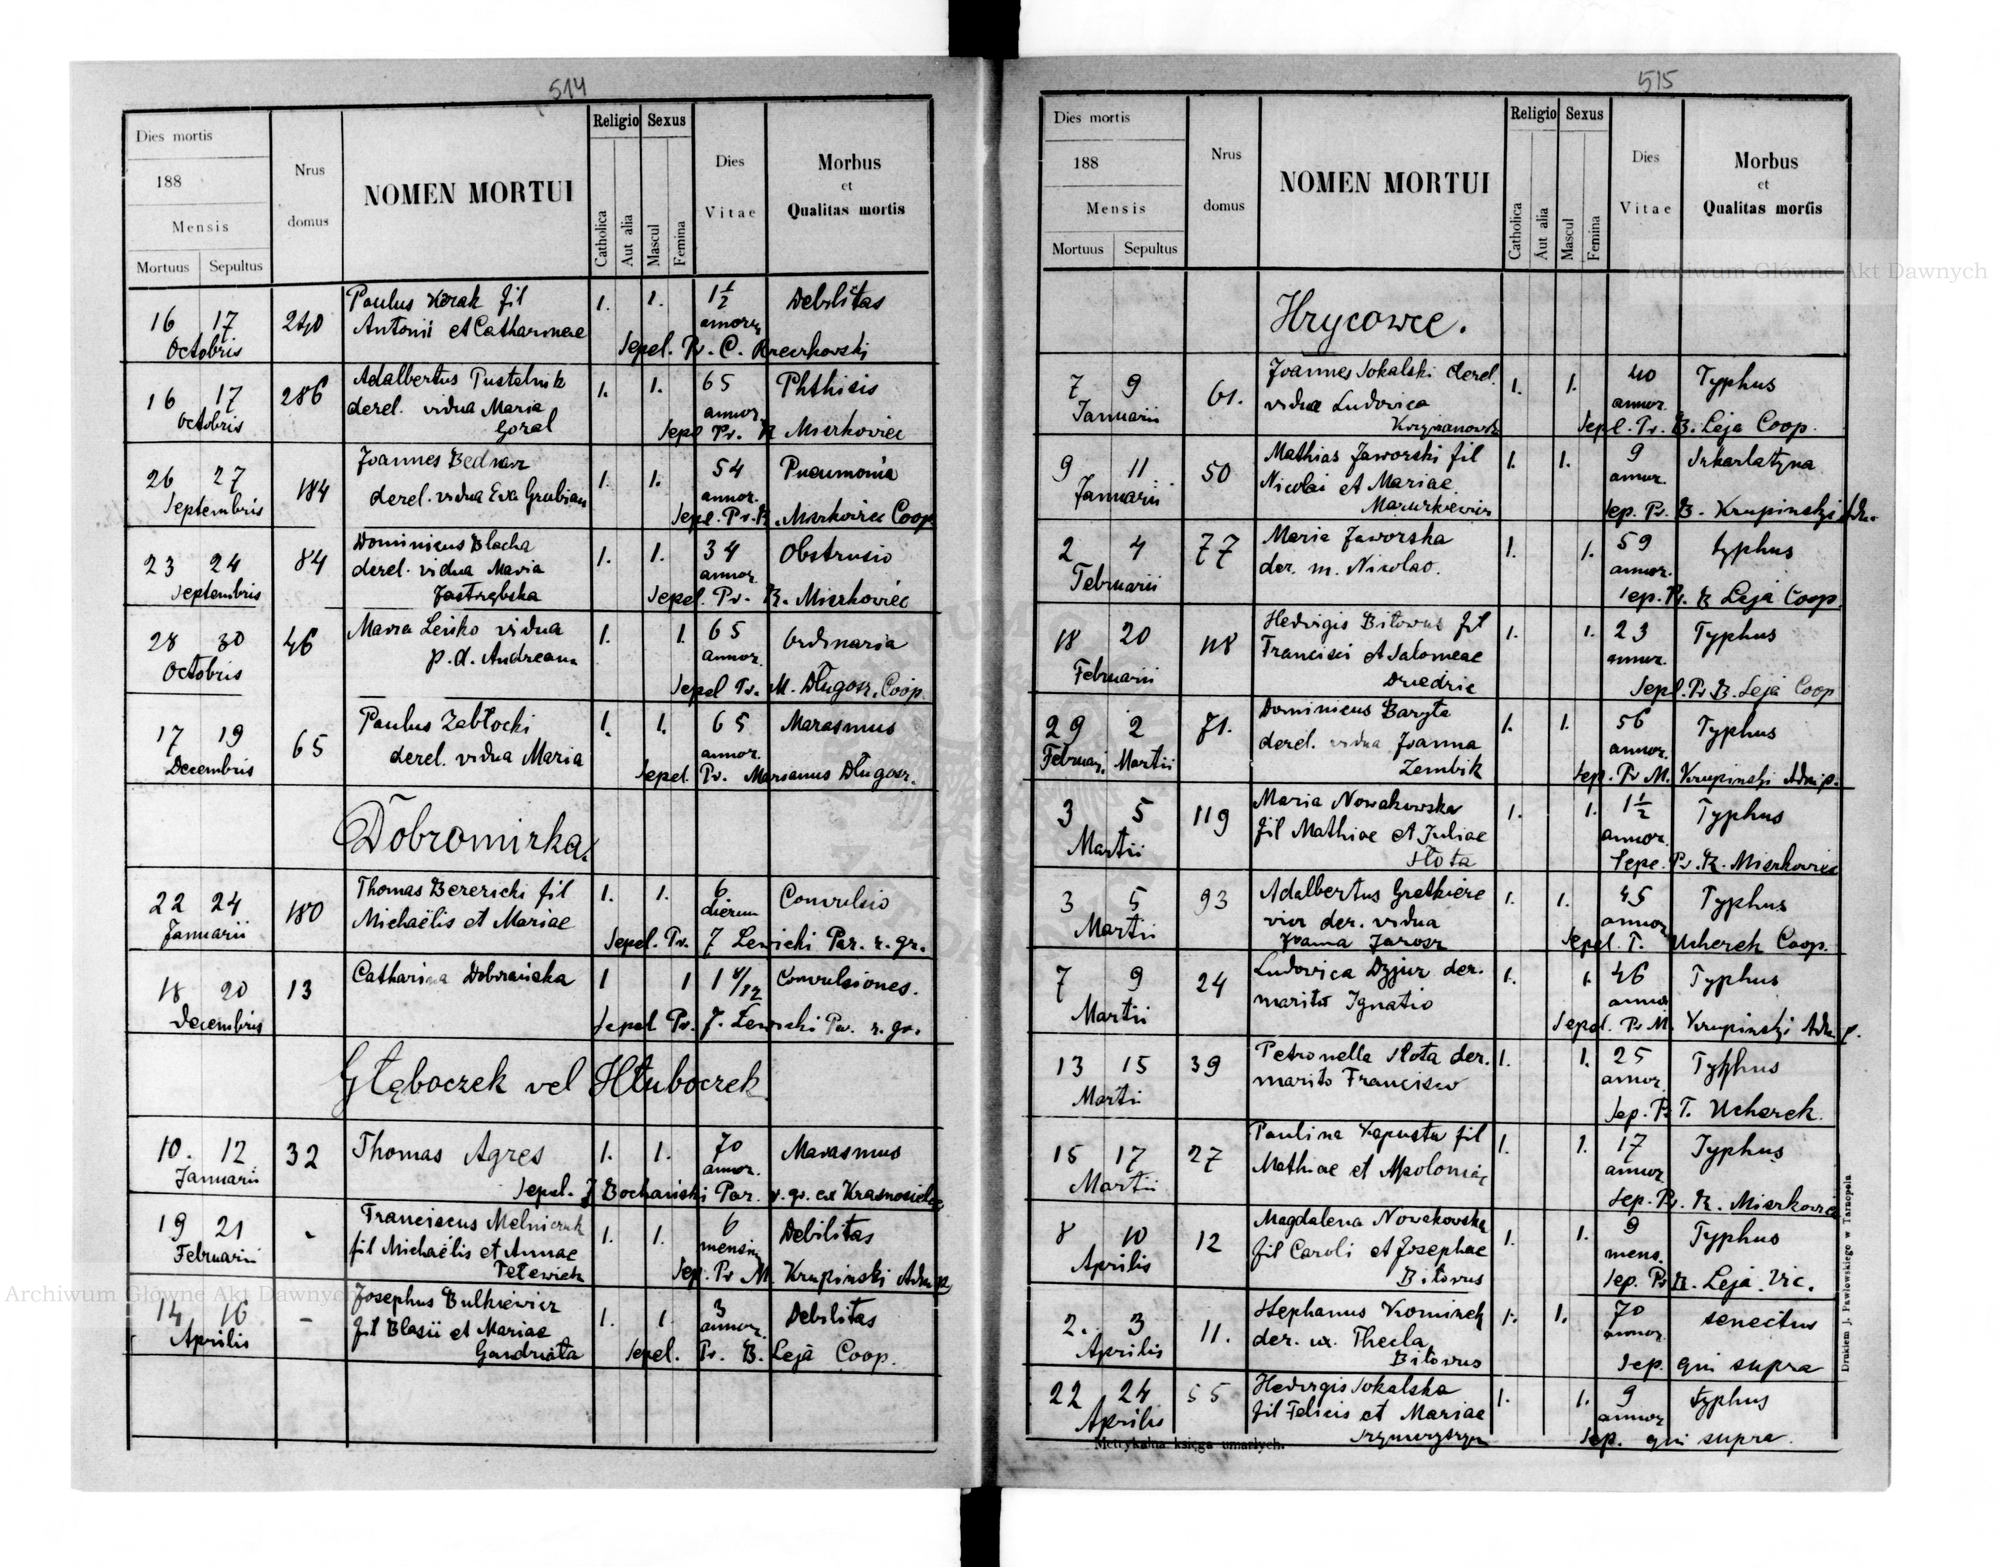 514
Dies mortis
188
Mensis
Mortuus Sepultus
Nrus domus
NOMEN MORTUI
Religio
Catholica
Aut alia
Sexus
Mascul
Femina
Dies Vitae
Morbus
et
Qualitas mortis
16 17 240 Paulus fil 1. 1. 1½ Debilitas
Octobris Antonii et Catharinae
Sepel. Pr. C.
16 17 286 Adalbertus Pustelnik 1. 1. 65 Phthisis
Octobris derel. vidua Maria annor.
Goral Sepel Pr. B. Mierkoviec
26 27 184 Joannes Bednarz 1. 1. 54 Pneumonia
Septembris derel. vidua Eva Grubian annor.
Sepel. Pr. B. Mierkoviec Coop
23 24 84 Dominicus Blacha 1. 1. 34 Obstrusio
Septembris derel. vidua Maria annor.
Jastrzębska Sepel. Pr. B. Mierkoviec
28 30 46 Maria Leńko vidua 1. 1. 65 Ordinaria
Octobris p. d. Andream annor.
Sepel Pr. M. Długosz, Coop.
17 19 65 Paulus Zabłocki 1. 1. 65 Marasmus
Decembris derel. vidua Maria annor.
Sepel Pr. Marianus Długosz.
Dobromirka.
22 24 180 Thomas fil 1. 1. 6 Convulsio
Januarii Michaëlis et Mariae dierum
Sepel. Pr. J Lewicki Par. r. gr.
18 20 13 Catharina 1 1 1 /12 Convulsiones.
Decembris
Sepel Pr. J. Lewicki Par. r. gr.
Głęboczek vel Hłuboczek
10. 12 32 Thomas Agres 1. 1. 70 Marasmus
Januarii annor.
Sepel. J Bochański Par. r. gr. ex Krasnosielce
19 21 - Franciscus Melniczuk 1. 1. 6 Debilitas
Februarii fil Michaëlis et Annae mensium
Sep. Pr M. Krupinski Adm
14 16 - Josephus Bulkiewicz 1. 1. 3 Debilitas
Aprilis fil Blasii et Mariae annor.
Sepel. Pr. B. Leja Coop.
515
Dies mortis
188
Mensis
Mortuus Sepultus
Nrus domus
NOMEN MORTUI
Religio
Catholica
Aut alia
Sexus
Mascul
Femina
Dies Vitae
Morbus
et
Qualitas mortis
Hrycowce.
7 9 61. Joannes Sokalski derel. 1. 1. 40 Typhus
Januarii vidua Ludovica annor.
Sepel. Pr. B. Leja Coop.
9 11 50 Mathias Jaworski fil 1. 1. 9 Szkarlatyna
Januarii Nicolai et Mariae annor.
Mazurkiewicz Sep. Pr. B. Krupinski Adm.
2 4 77 Maria Jaworska 1. 1. 59 typhus
Februarii der. m. Nicolao. annor.
Sep. Pr. B Leja Coop.
18 20 118 Hedvigis Bitovus fil 1. 1. 23 Typhus
Februarii Francisci et Salomeae annor.
Sepel. Pr B. Leja Coop
29 2 71. Dominicus Baryła 1. 1. 56 Typhus
Februar. Martii derel. vidua Joanna annor.
Zembik Sep. Pr M. Krupinski Adm p.
3 5 119 Maria Nowakowska 1. 1. 1½ Typhus
Martii fil Mathiae et Juliae annor.
Słota Sepe. Pr. B. Mierkoviec
3 5 93 Adalbertus Gretkiere 1. 1. 45 Typhus
Martii vicz der. vidua annor
Joanna Jarosz Sepel. T. Ucherek Coop.
7 9 24 Ludovica Dzjur der. 1. 1. 46 Typhus
Martii marito Ignatio annor
Sepel. Pr M. Krupinski Adm p.
13 15 39 Petronella Słota der. 1. 1. 25 Typhus
Martii marito Francisco annor.
Sep. Pr T. Ucherek.
15 17 27 Paulina Kapusta fil 1. 1. 17 Typhus
Martii Mathiae et Apoloniae annor
Sep. Pr. B. Mierkoviec
8 10 12 Magdalena Nowakowska 1. 1. 9 Typhus
Aprilis fil Caroli et Josephae mens.
Bitovus Sep. Pr B. Leja Vic.
2. 3 11. Stephanus Kominek 1. 1. 70 senectus
Aprilis der. ux. Thecla annor
Bitovus Sep. qui supra
22 24 55 Hedvigis Sokalska 1. 1. 9 typhus
Aprilis fil Felicis et Mariae annor
Sep. qui supra.
Metrykalna księga umarłych.
Drukiem J. Pawłowskiego w Tarnopolu
Archiwum Główne Akt Dawnych
Archiwum Główne Akt Dawnych